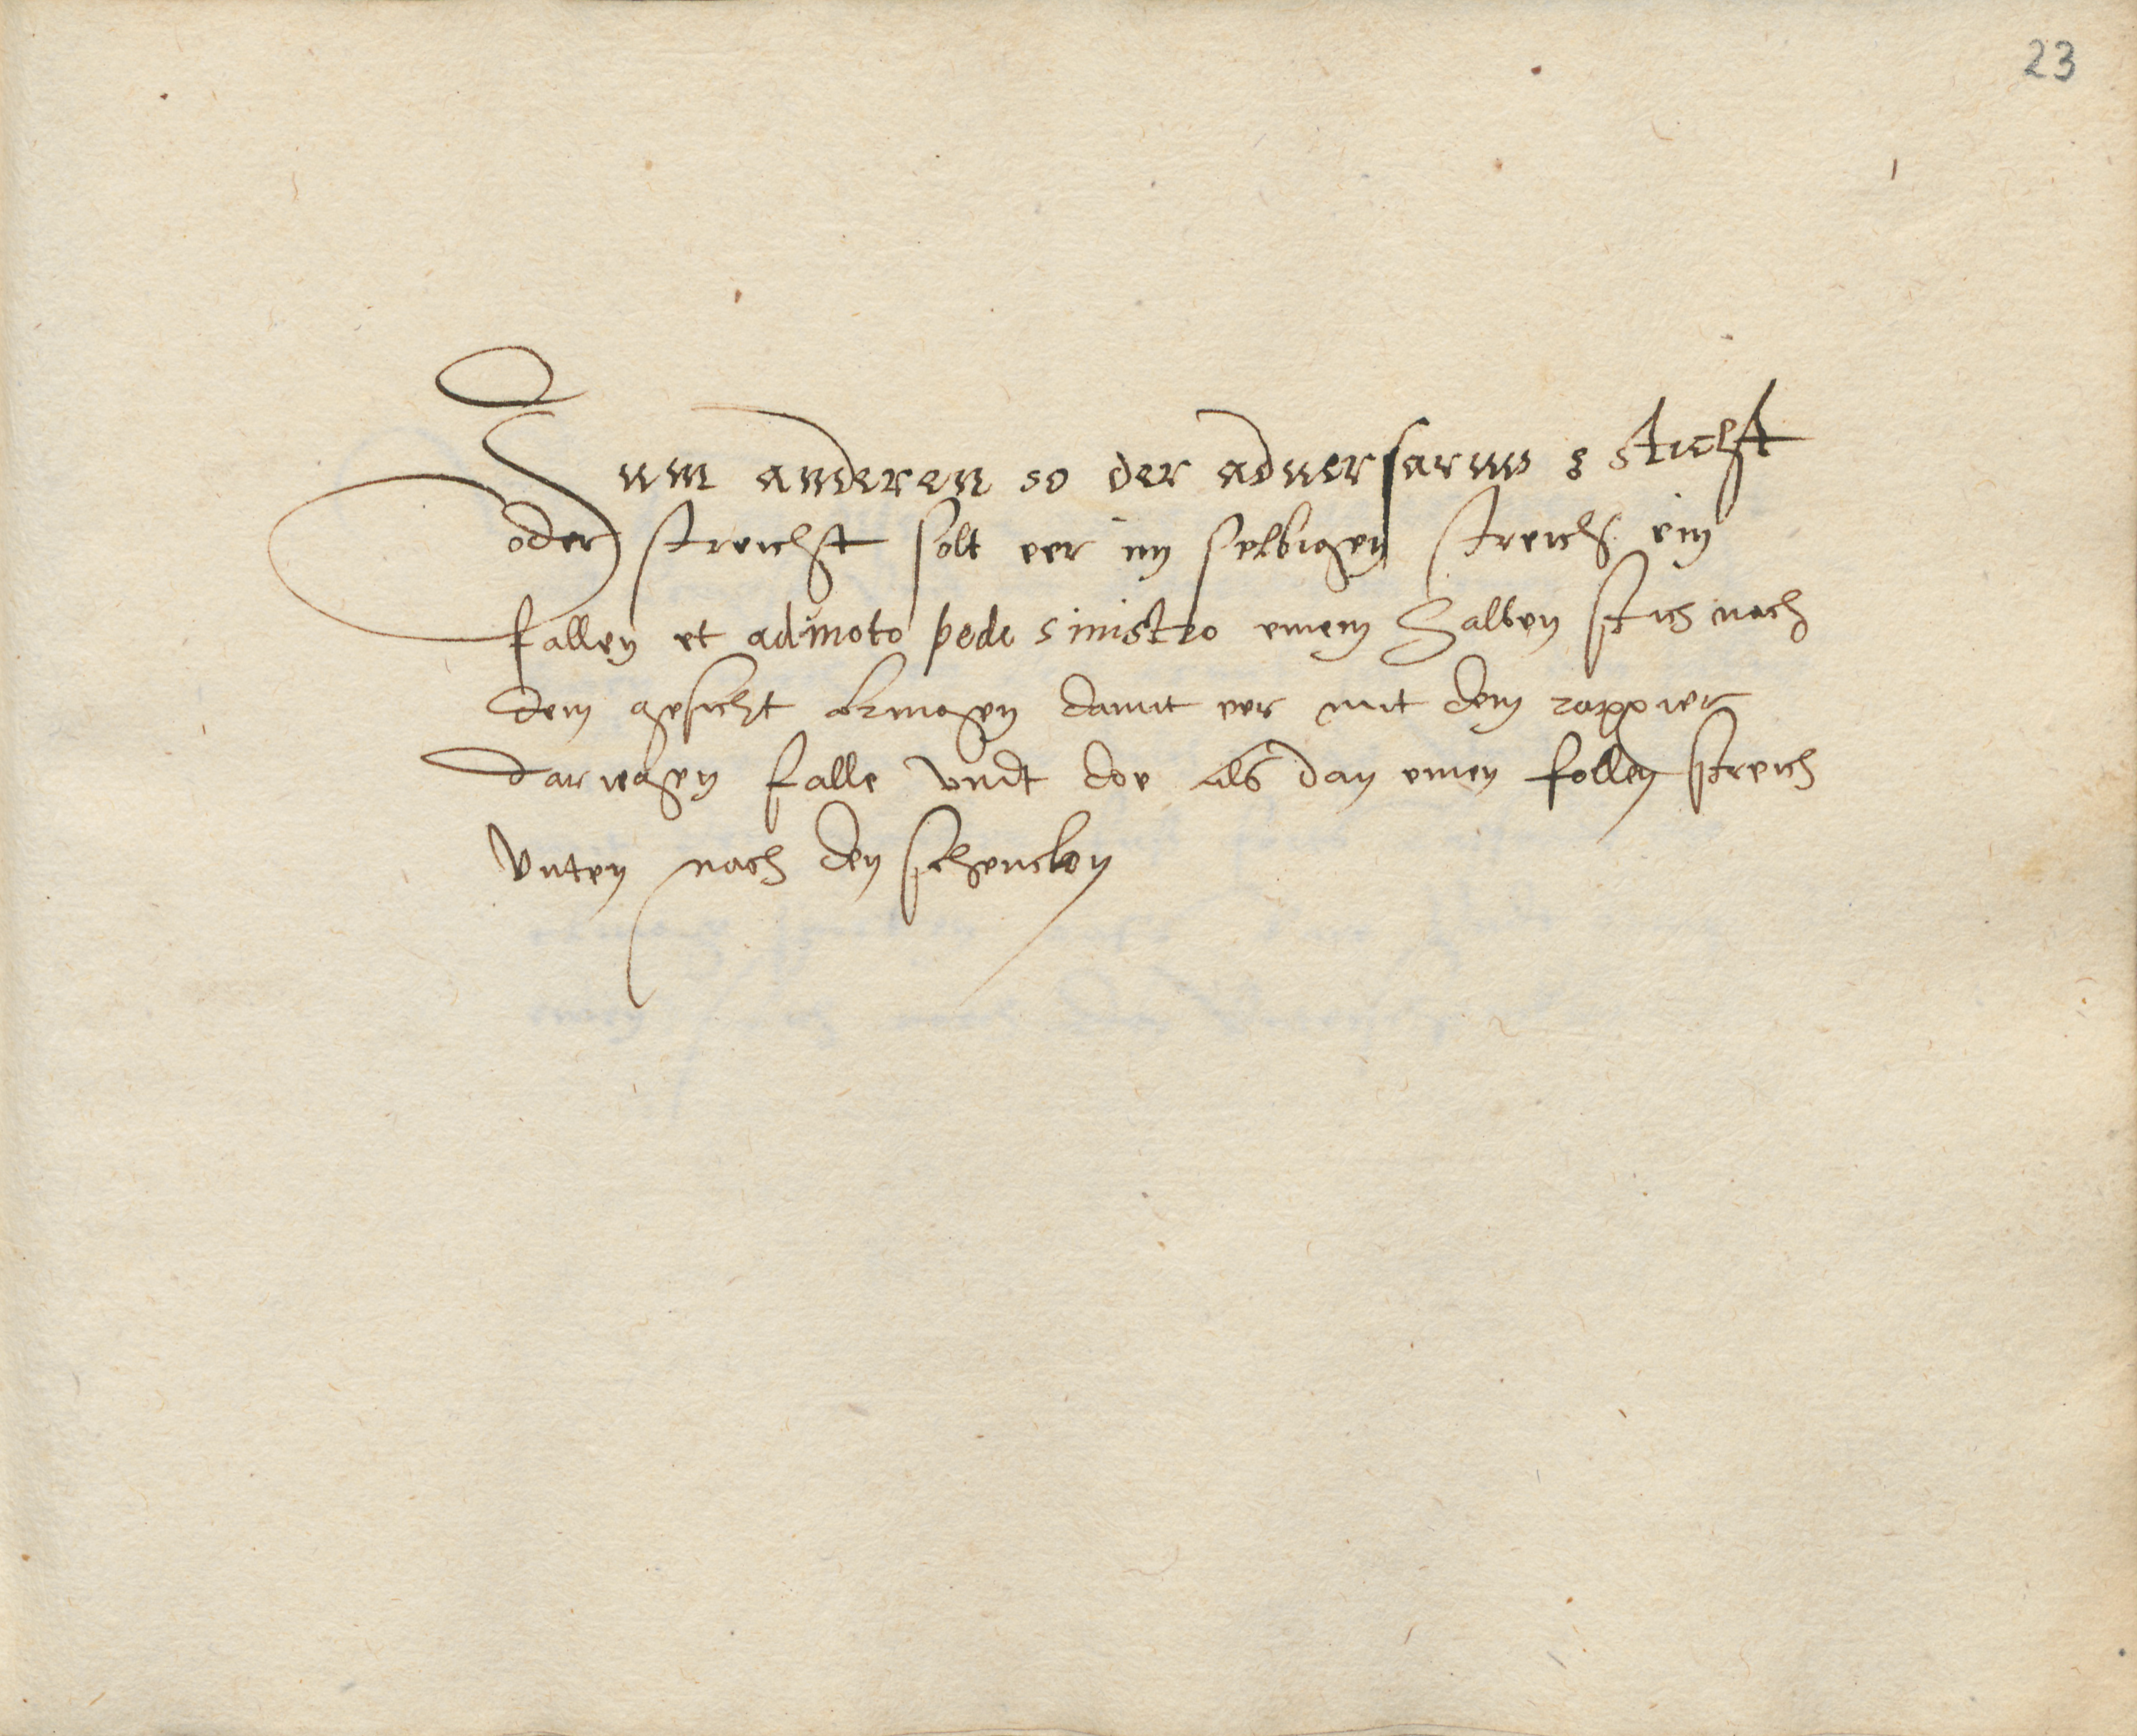 23
Zum anderen so der aduersarius s sticht
oder streicht solt eer im selbigen streich ein
fallen et admoto pede sinistro einem halben stich nach
dem gesicht damit eer mit dem rappier
falle vndt doe als dan einen follen streich
Vnten nach den schencklen